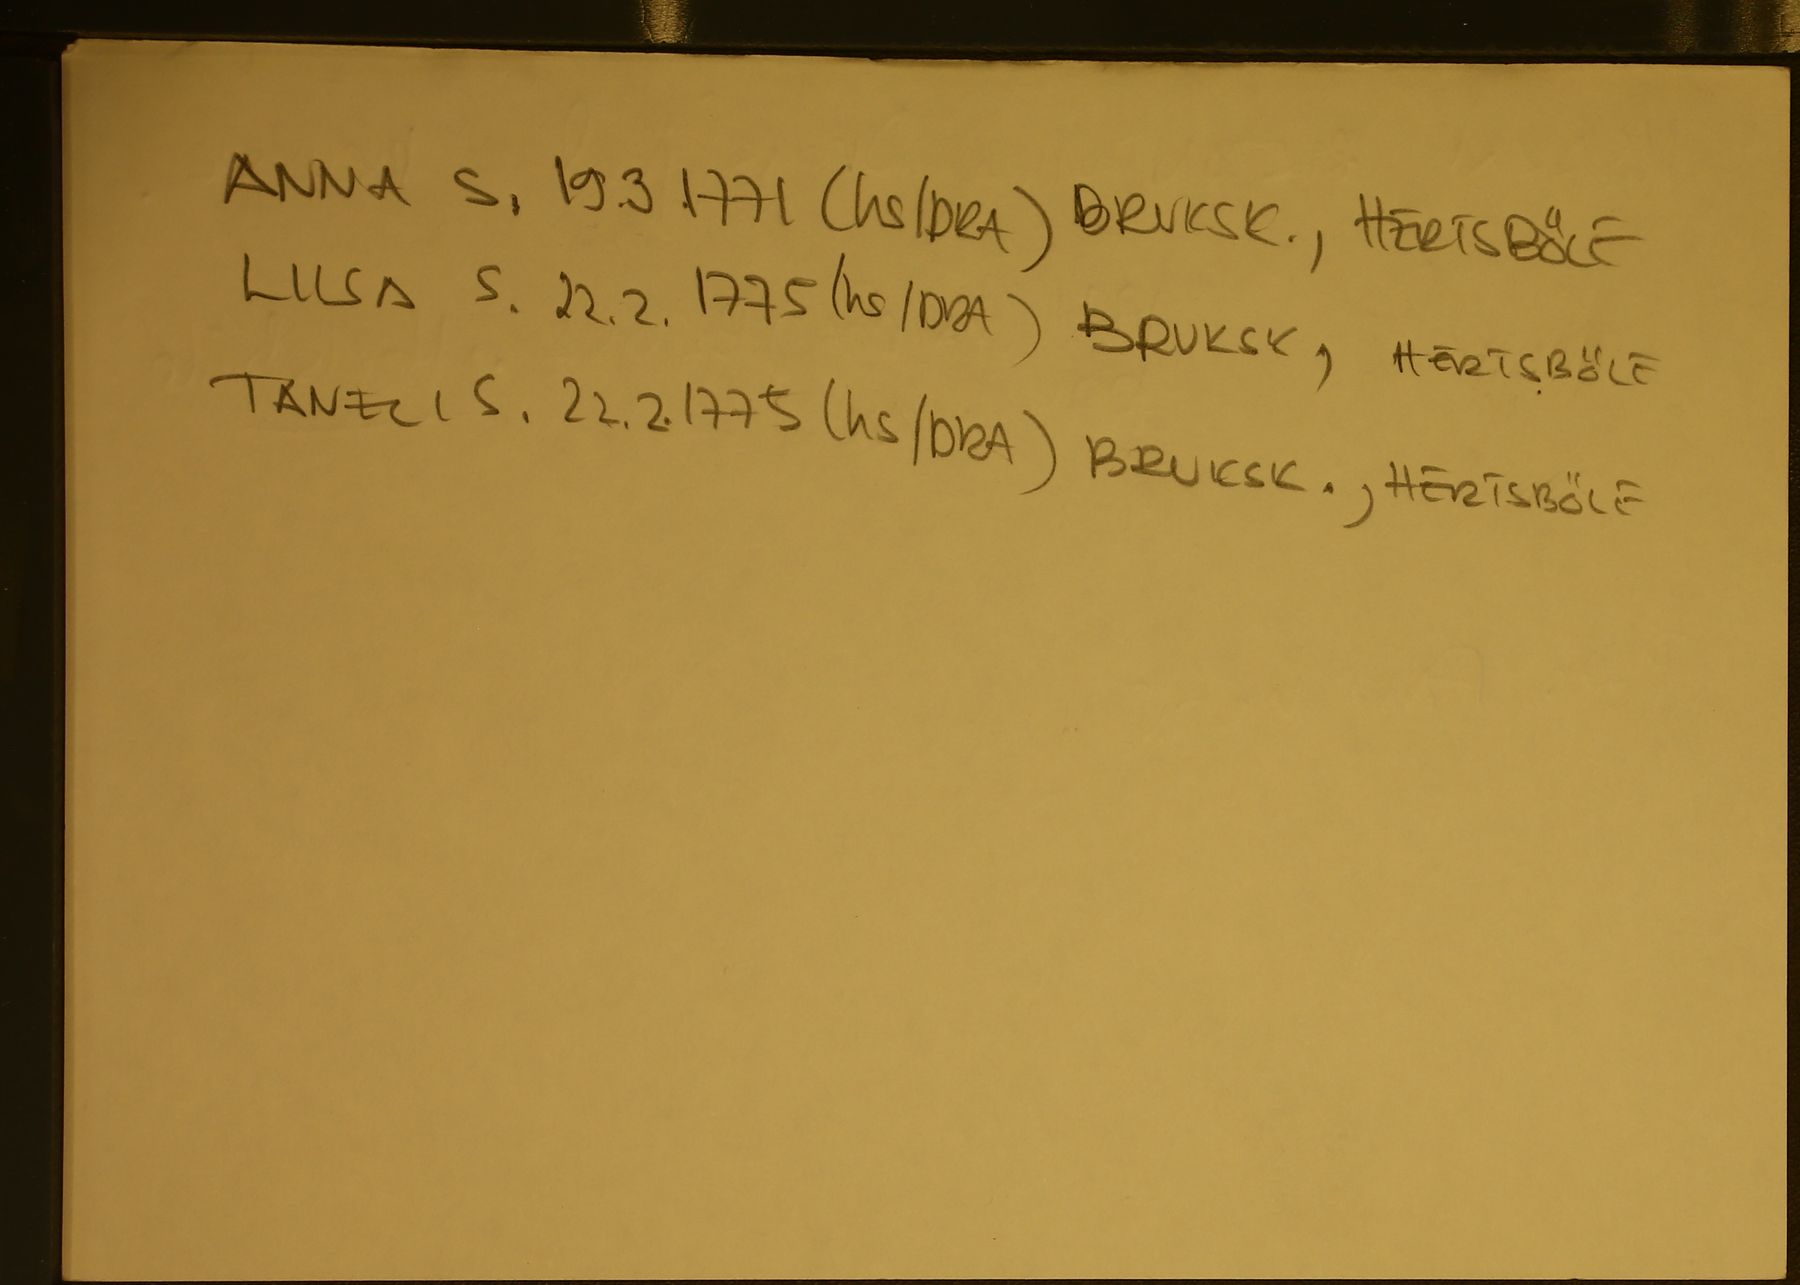 ANNA S. 19.3.1771 (hs/DRA) BRUKSK., HERTSBÖLE
LIISA S. 22.2.1775 (hs/DRA) BRUKSK, HERTSBÖLE
TANELI S. 22.2.1775 (hs/DRA) BRUKSK., HERTSBÖLE